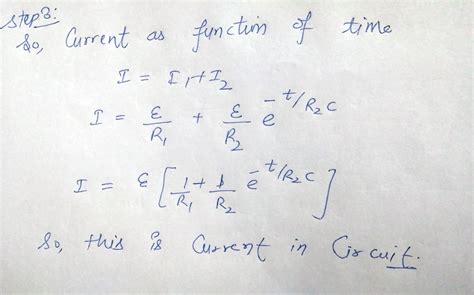 Step3:
So, Current as function of time
I = I₁+I₂
I = ε/R₁ + ε/R₂ e^-t/R₂C
I = ε [1/R₁ + 1/R₂ e^-t/R₂C]
So, this is Current in Circuit.